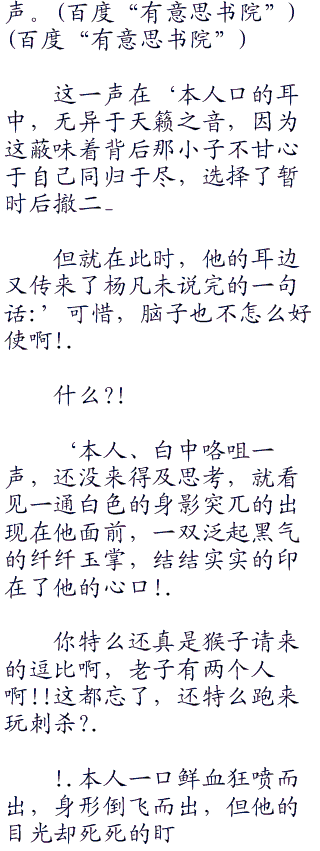 声。(百度“有意思书院”)
(百度“有意思书院”)
这一声在‘本人口的耳
中，无异于天籁之音，因为
这蔽味着背后那小子不甘心
于自己同归于尽，选择了暂
时后撤二_
但就在此时，他的耳边
又传来了杨凡未说完的一句
话:’可惜，脑子也不怎么好
使啊!.
什么?!
‘本人、白中咯咀一
声，还没来得及思考，就看
见一通白色的身影突兀的出
现在他面前，一双泛起黑气
的纤纤玉掌，结结实实的印
在了他的心口!.
你特么还真是猴子请来
的逗比啊，老子有两个人
啊!!这都忘了，还特么跑来
玩刺杀?.
!.本人一口鲜血狂喷而
出，身形倒飞而出，但他的
目光却死死的盯